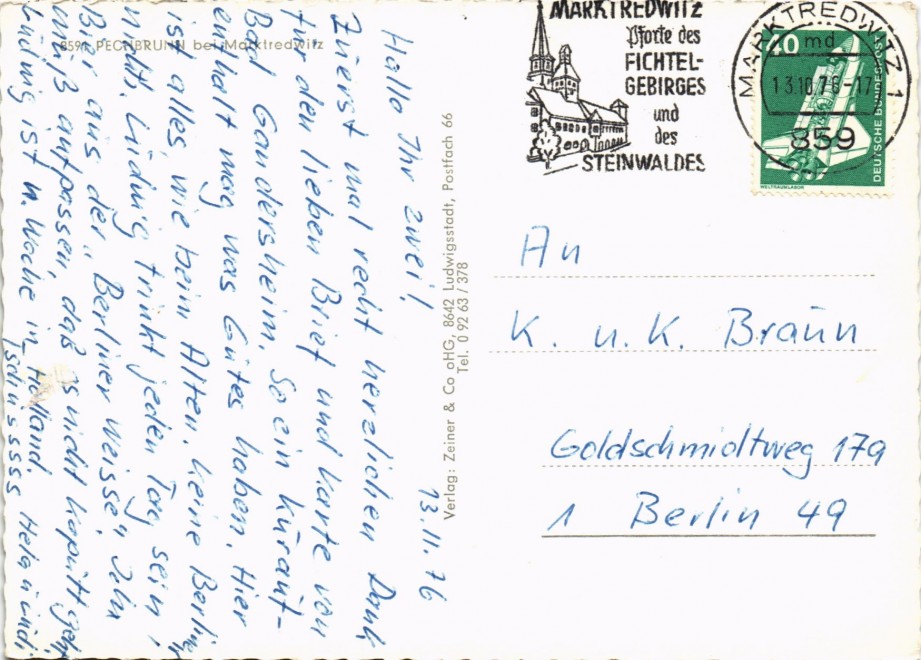 8591 PECHBRUNN bei Marktredwitz
13.11.76
Hallo Ihr zwei!
Zuerst mal recht herzlichen Dank
für den lieben Brief und Karte von
Bad Gandersheim. So ein Kurauf-
enthalt mag was Gutes haben. Hier
ist alles wie beim Alten. Keine Berliner
nicht. Ludwig trinkt jeden Tag sein
Bier aus der „Berliner Weisse"
muß aufpassen, daß es nicht kaputt geht
Ludwig ist n. Woche in Holland.
Schüssss Helga und
Verlag: Zeiner & Co oHG, 8642 Ludwigsstadt, Postfach 66
Tel. 0 92 63 / 378
MARKTREDWITZ
Pforte des
FICHTEL-
GEBIRGES
und
des
STEINWALDES
MARKTREDWITZ 1
md
13.10.76-17
859
40
DEUTSCHE BUNDESPOST
WELTRAUMLABOR
An
K. u. K. Braun
Goldschmidtweg 17a
1 Berlin 49